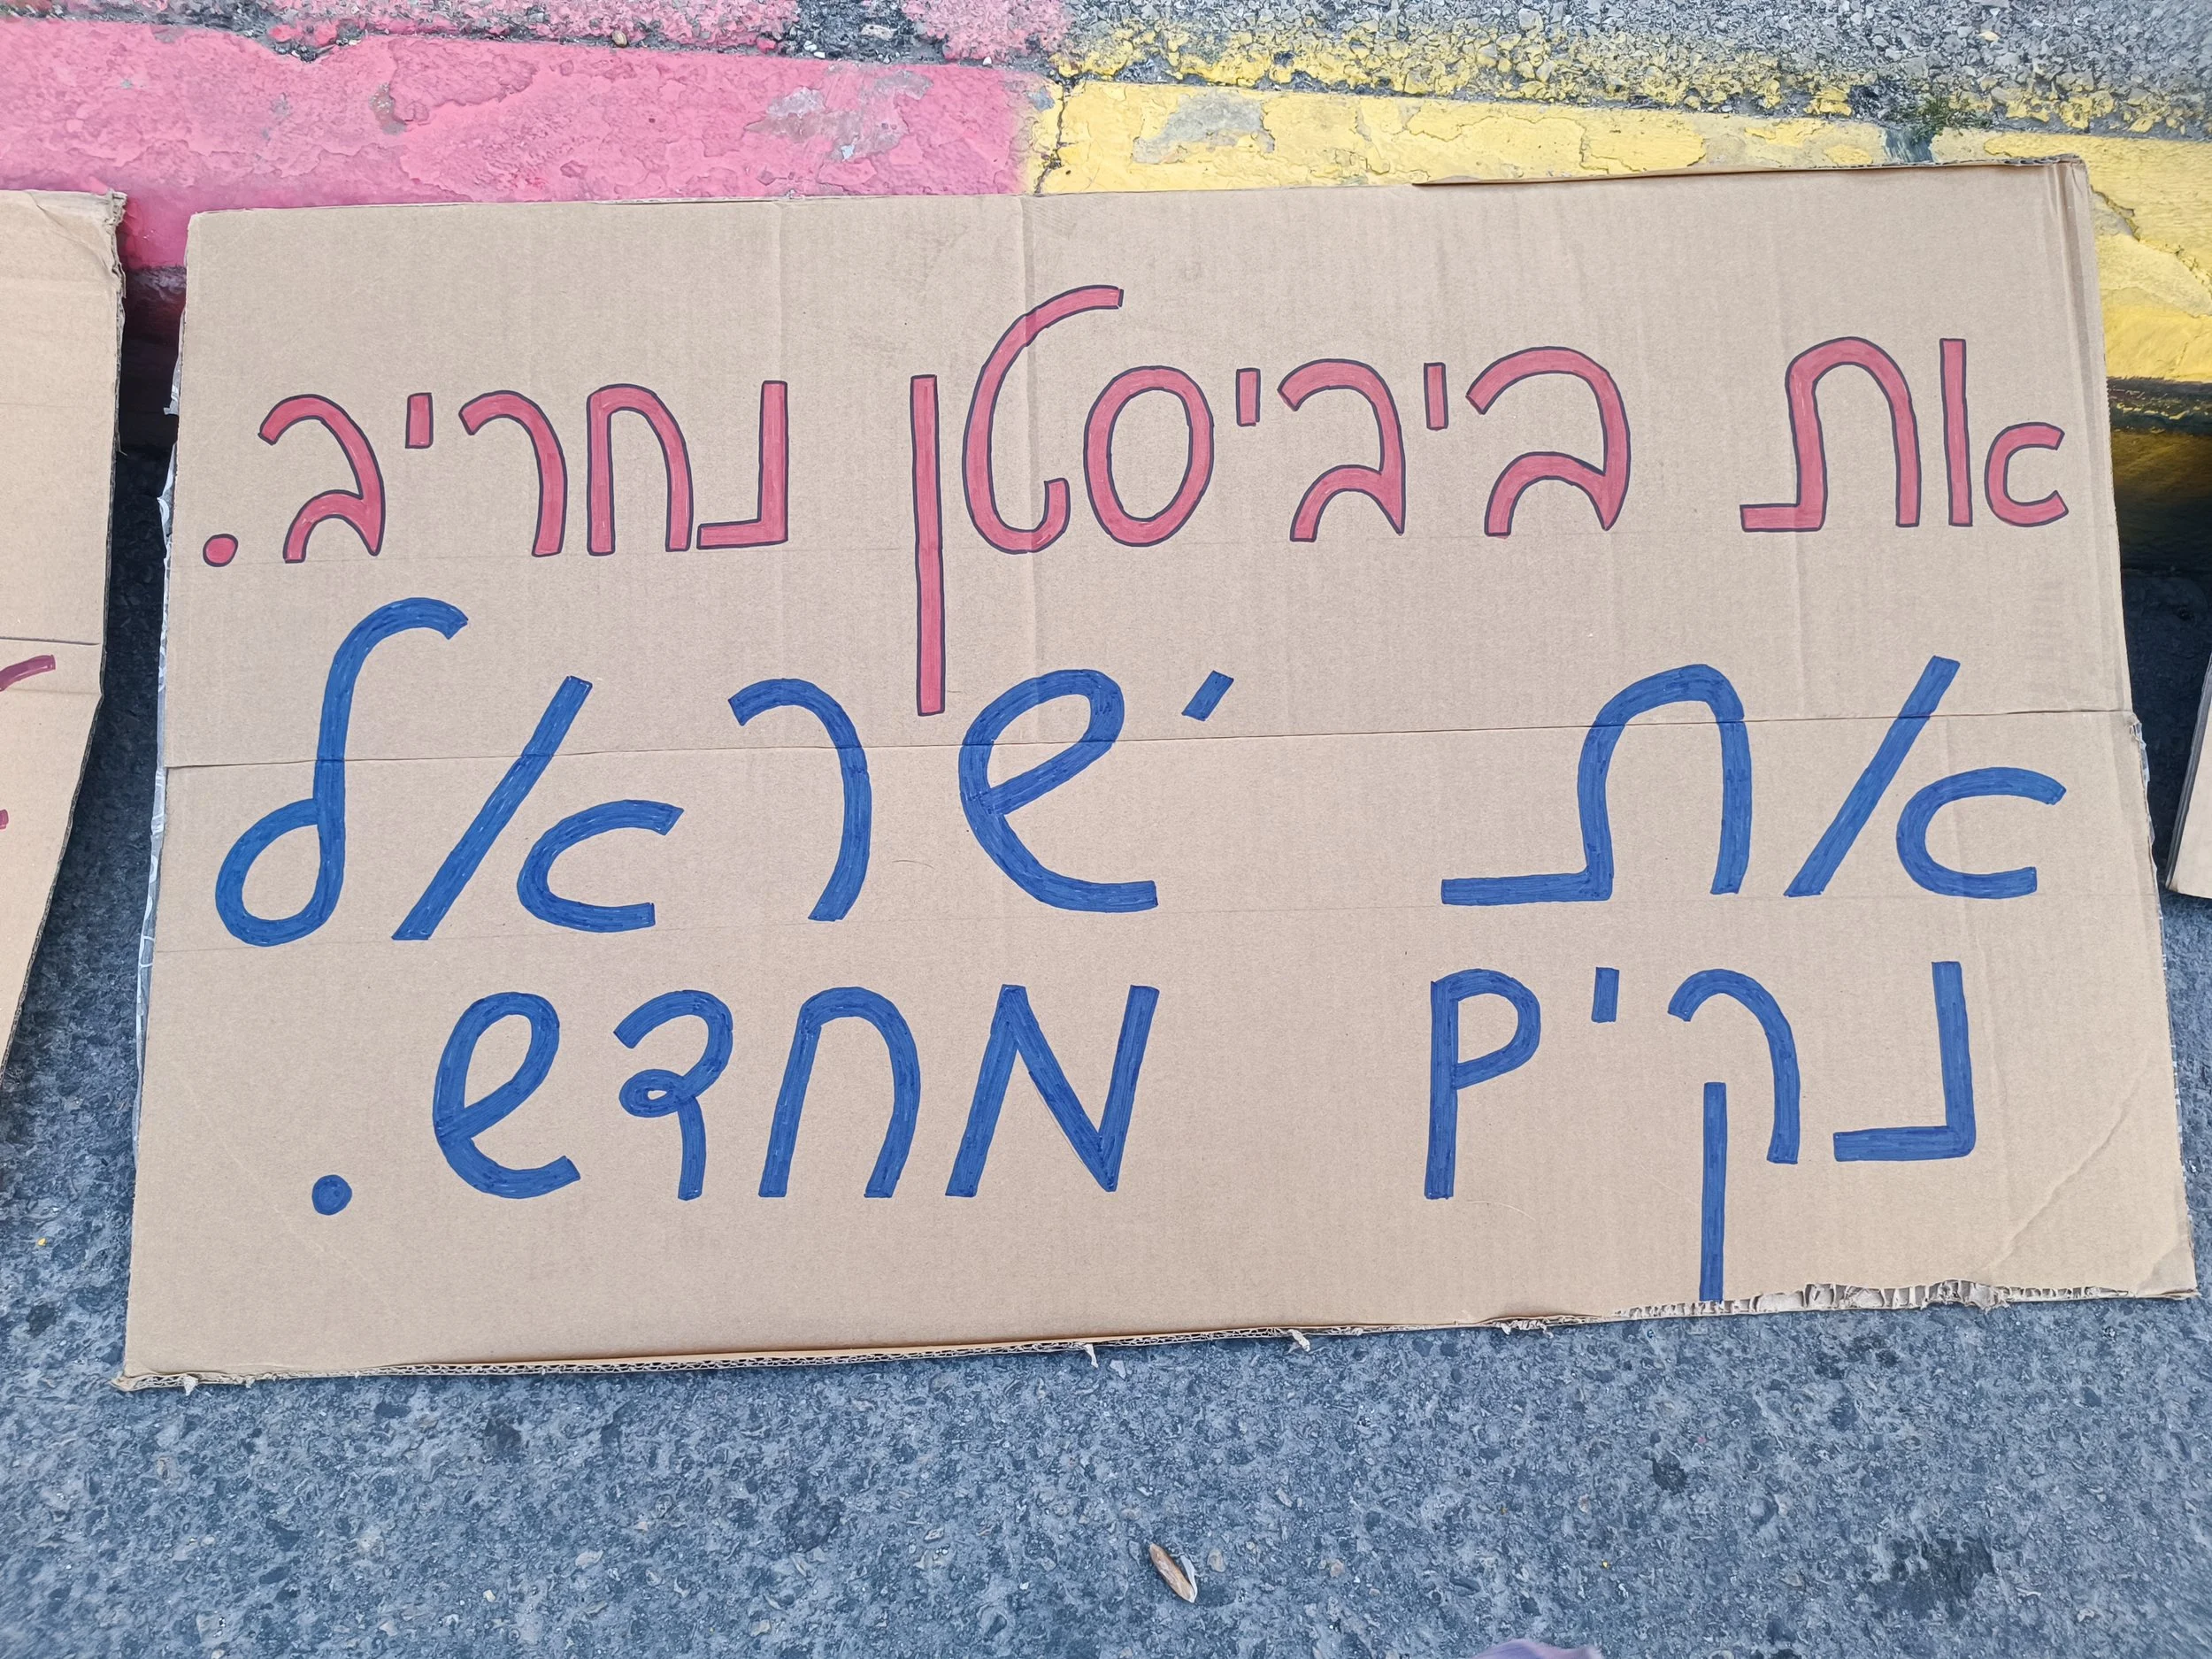 את ביביסטן נחריב.
את ישראל
נקים מחדש.